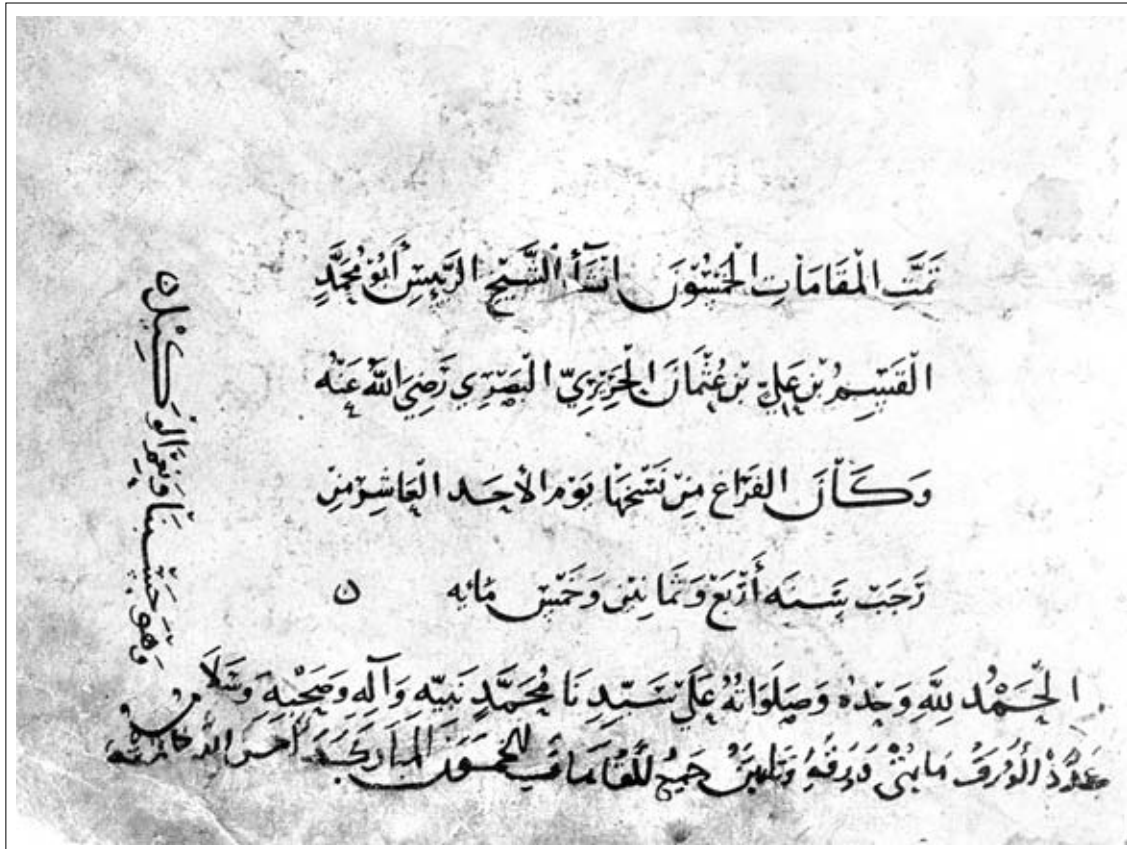 تَمَّتِ الْمَقَامَاتِ الْخَمْسُوْنَ انْشَآءُ الشَّيْخِ الرَّئِيْسِ أَبُوْ مُحَمَّدٍ
الْقٰسِمُ بْنِ عَلِيّ بْنِ عُثْمَانَ الْحَرِيْرِيّ الْبَصْرِيْ رَضِيَ اللّٰهُ عَنْهُ
وَكَانَ الفَرَاغ مِنْ نَسْخِهَا يَوْم الأَحَد الْعَاشِرْ مِنْ
رَجَبْ سَنَه أَرْبَعْ وَثَمَانِيْنَ وَخَمْسِ مائه
الْحَمْدُ لِلّٰهِ وَحْدَهُ وَصَلَوَاتُهُ عَلَى سَيِّدِنَا مُحَمَّدٍ نَبِيِّهِ وَآلِهِ وَصَحْبِهِ وَسَلَامُهُ
وَرَقَه جَمِيْعُ المَقَامَات الخمسون المباركه
وَهُوَ حَسْبُنَا وَنِعْمَ الْوَكِيْلُ